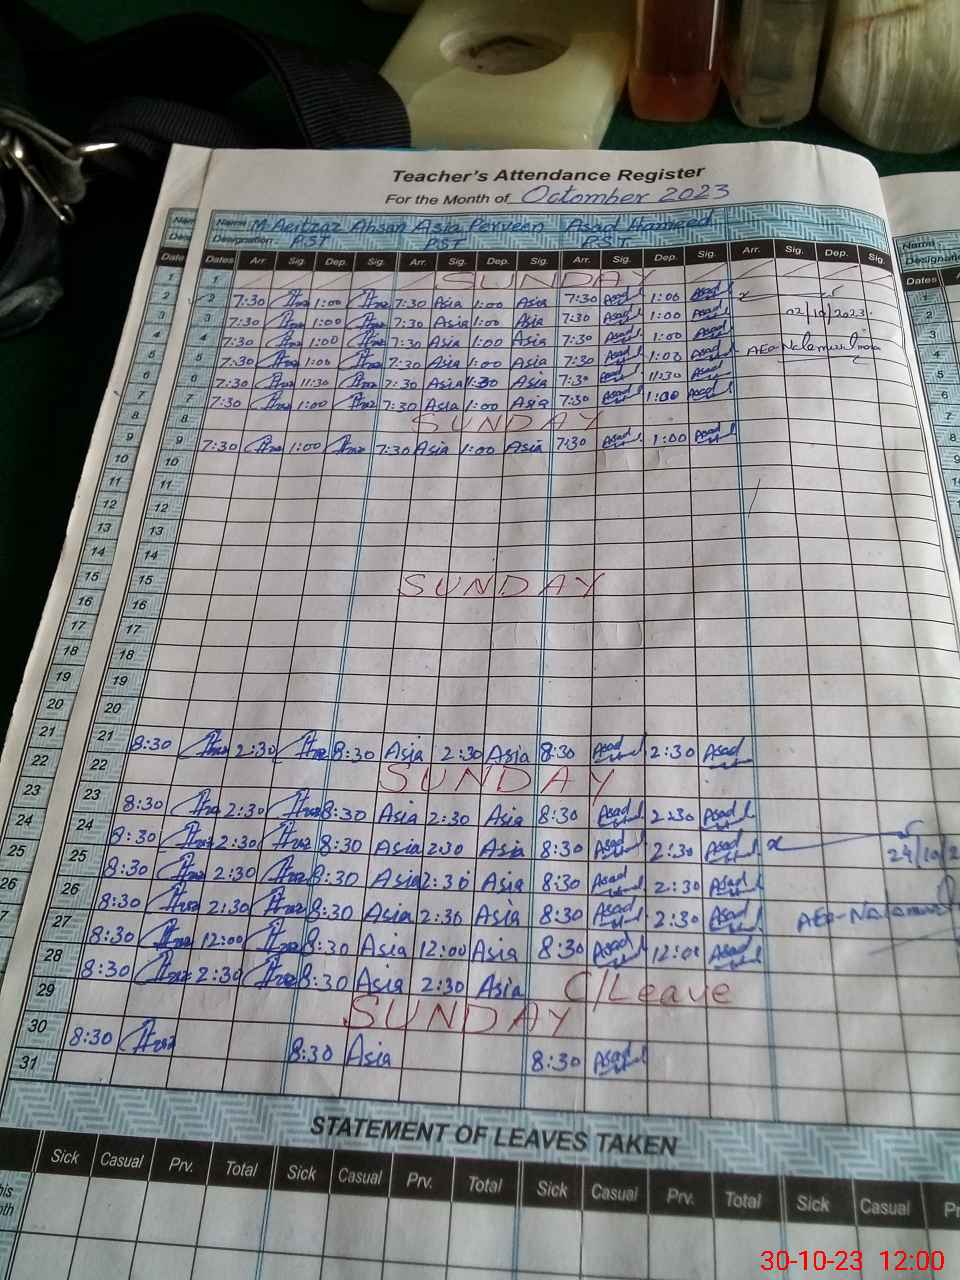 Teacher's Attendance Register
For the Month of Octomber 2023
Name M Aeitzaz Ahsan Asia Perveen Asad Hameed
Designation: P.S.T P.S.T P.S.T.
Date Dates Arr. Sig. Dep. Sig. Arr. Sig. Dep. Sig. Arr. Sig. Dep. Sig. Arr. Sig. Dep. Sig.
1 1 SUNDAY
2 2 7:30 1:00 7:30 Asia 1:00 Asia 7:30 Asad 1:00 Asad
3 3 7:30 1:00 7:30 Asia 1:00 Asia 7:30 Asad 1:00 Asad 02/10/2023
4 4 7:30 1:00 7:30 Asia 1:00 Asia 7:30 Asad 1:00 Asad
5 5 7:30 1:00 7:30 Asia 1:00 Asia 7:30 Asad 1:00 Asad AEO-
6 6 7:30 11:30 7:30 Asia 11:30 Asia 7:30 Asad 11:30 Asad
7 7 7:30 1:00 7:30 Asia 1:00 Asia 7:30 Asad 1:00 Asad
8 8 SUNDAY
9 9 7:30 1:00 7:30 Asia 1:00 Asia 7:30 Asad 1:00 Asad
10 10
11 11
12 12
13 13
14 14
15 15 SUNDAY
16 16
17 17
18 18
19 19
20 20
21 21 8:30 2:30 8:30 Asia 2:30 Asia 8:30 Asad 2:30 Asad
22 22 SUNDAY
23 23 8:30 2:30 8:30 Asia 2:30 Asia 8:30 Asad 2:30 Asad
24 24 8:30 2:30 8:30 Asia 2:30 Asia 8:30 Asad 2:30 Asad 24/10/2
25 25 8:30 2:30 8:30 Asia 2:30 Asia 8:30 Asad 2:30 Asad
26 26 8:30 2:30 8:30 Asia 2:30 Asia 8:30 Asad 2:30 Asad AEO-
7 27 8:30 12:00 8:30 Asia 12:00 Asia 8:30 Asad 12:00 Asad
28 8:30 2:30 8:30 Asia 2:30 Asia C/Leave
29 SUNDAY
30 8:30 8:30 Asia 8:30 Asad
31
STATEMENT OF LEAVES TAKEN
Sick Casual Prv. Total Sick Casual Prv. Total Sick Casual Prv. Total Sick Casual Pr
Name
Designatio
Dates
30-10-23 12:00